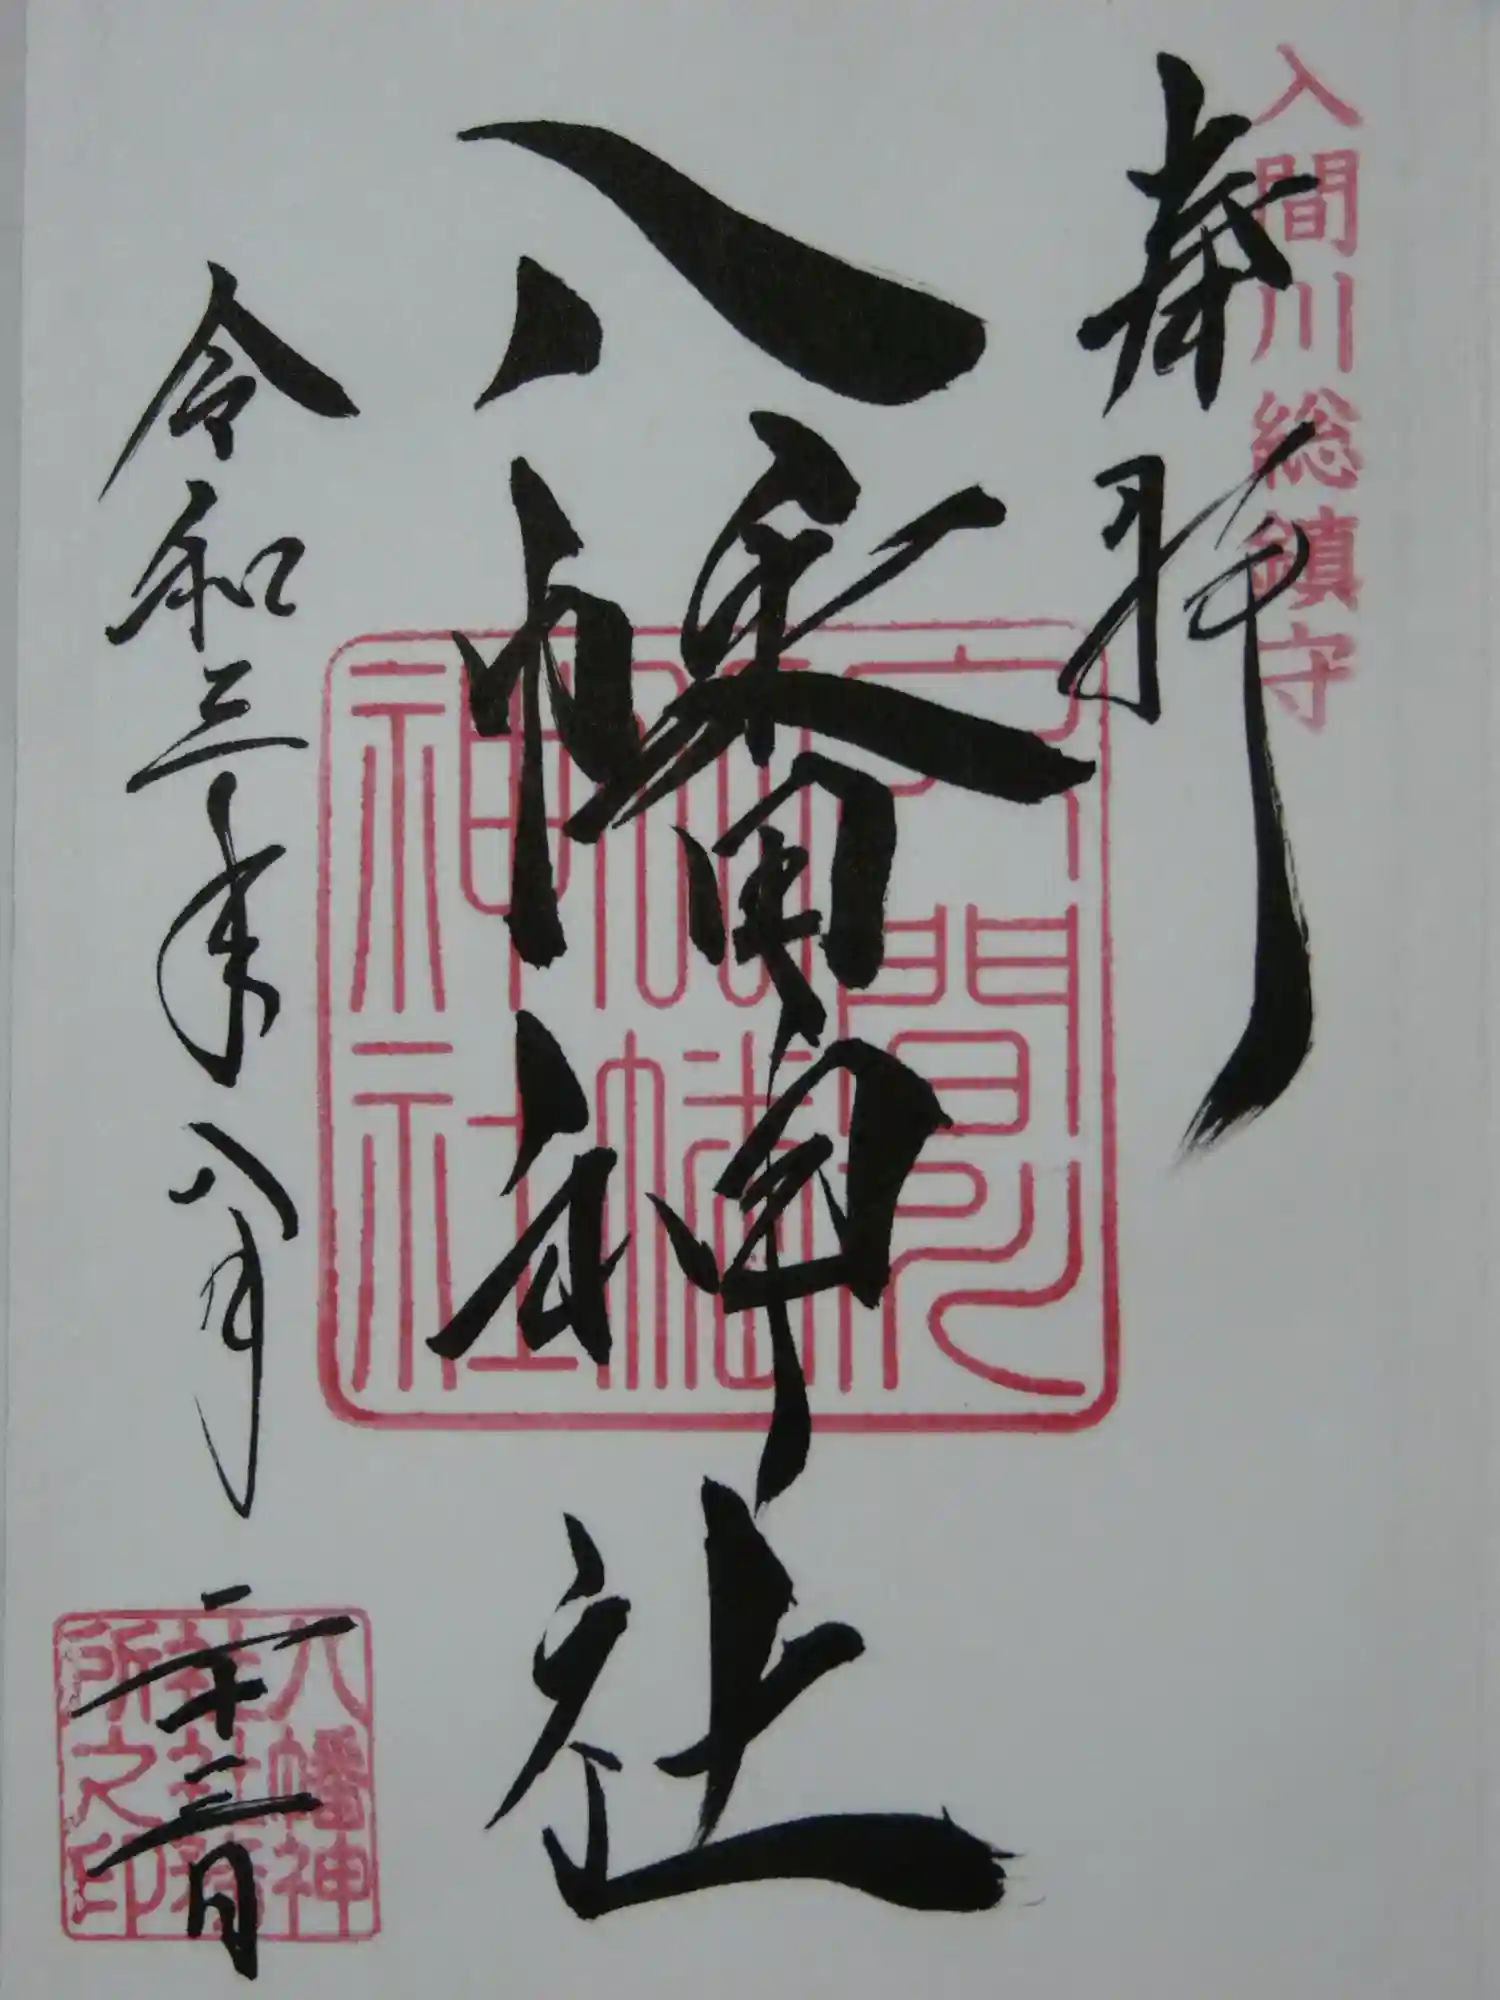 入間川総鎮守
奉拝
八幡神社
令和三年八月二十三日
八幡神
社社務
所之印